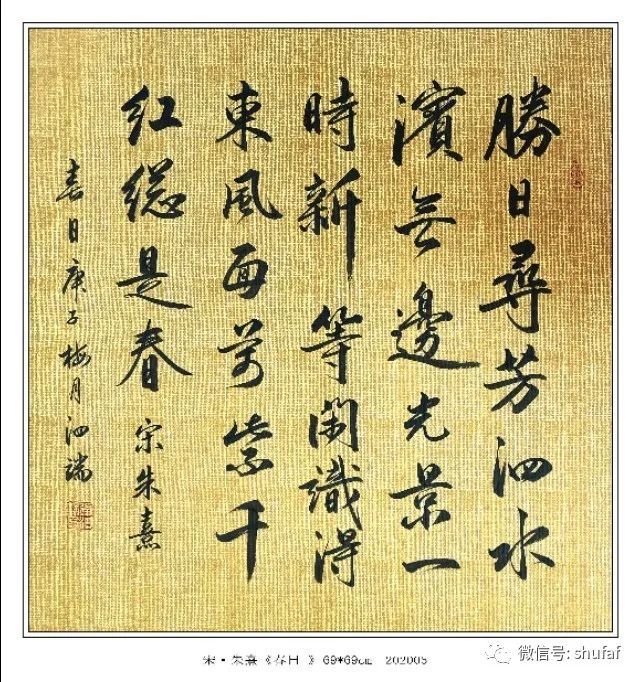 勝日尋芳泗水
濱無邊光景一
時新等閑識得
東風面萬紫千
紅緫是春 宋朱熹
春日庚子梅月泗端
宋·朱熹《春日 》69*69cm 202005
微信号: shufaf